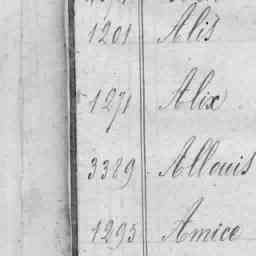 1201 Alis
1271 Alix
3389 Allouis
1293 Amice